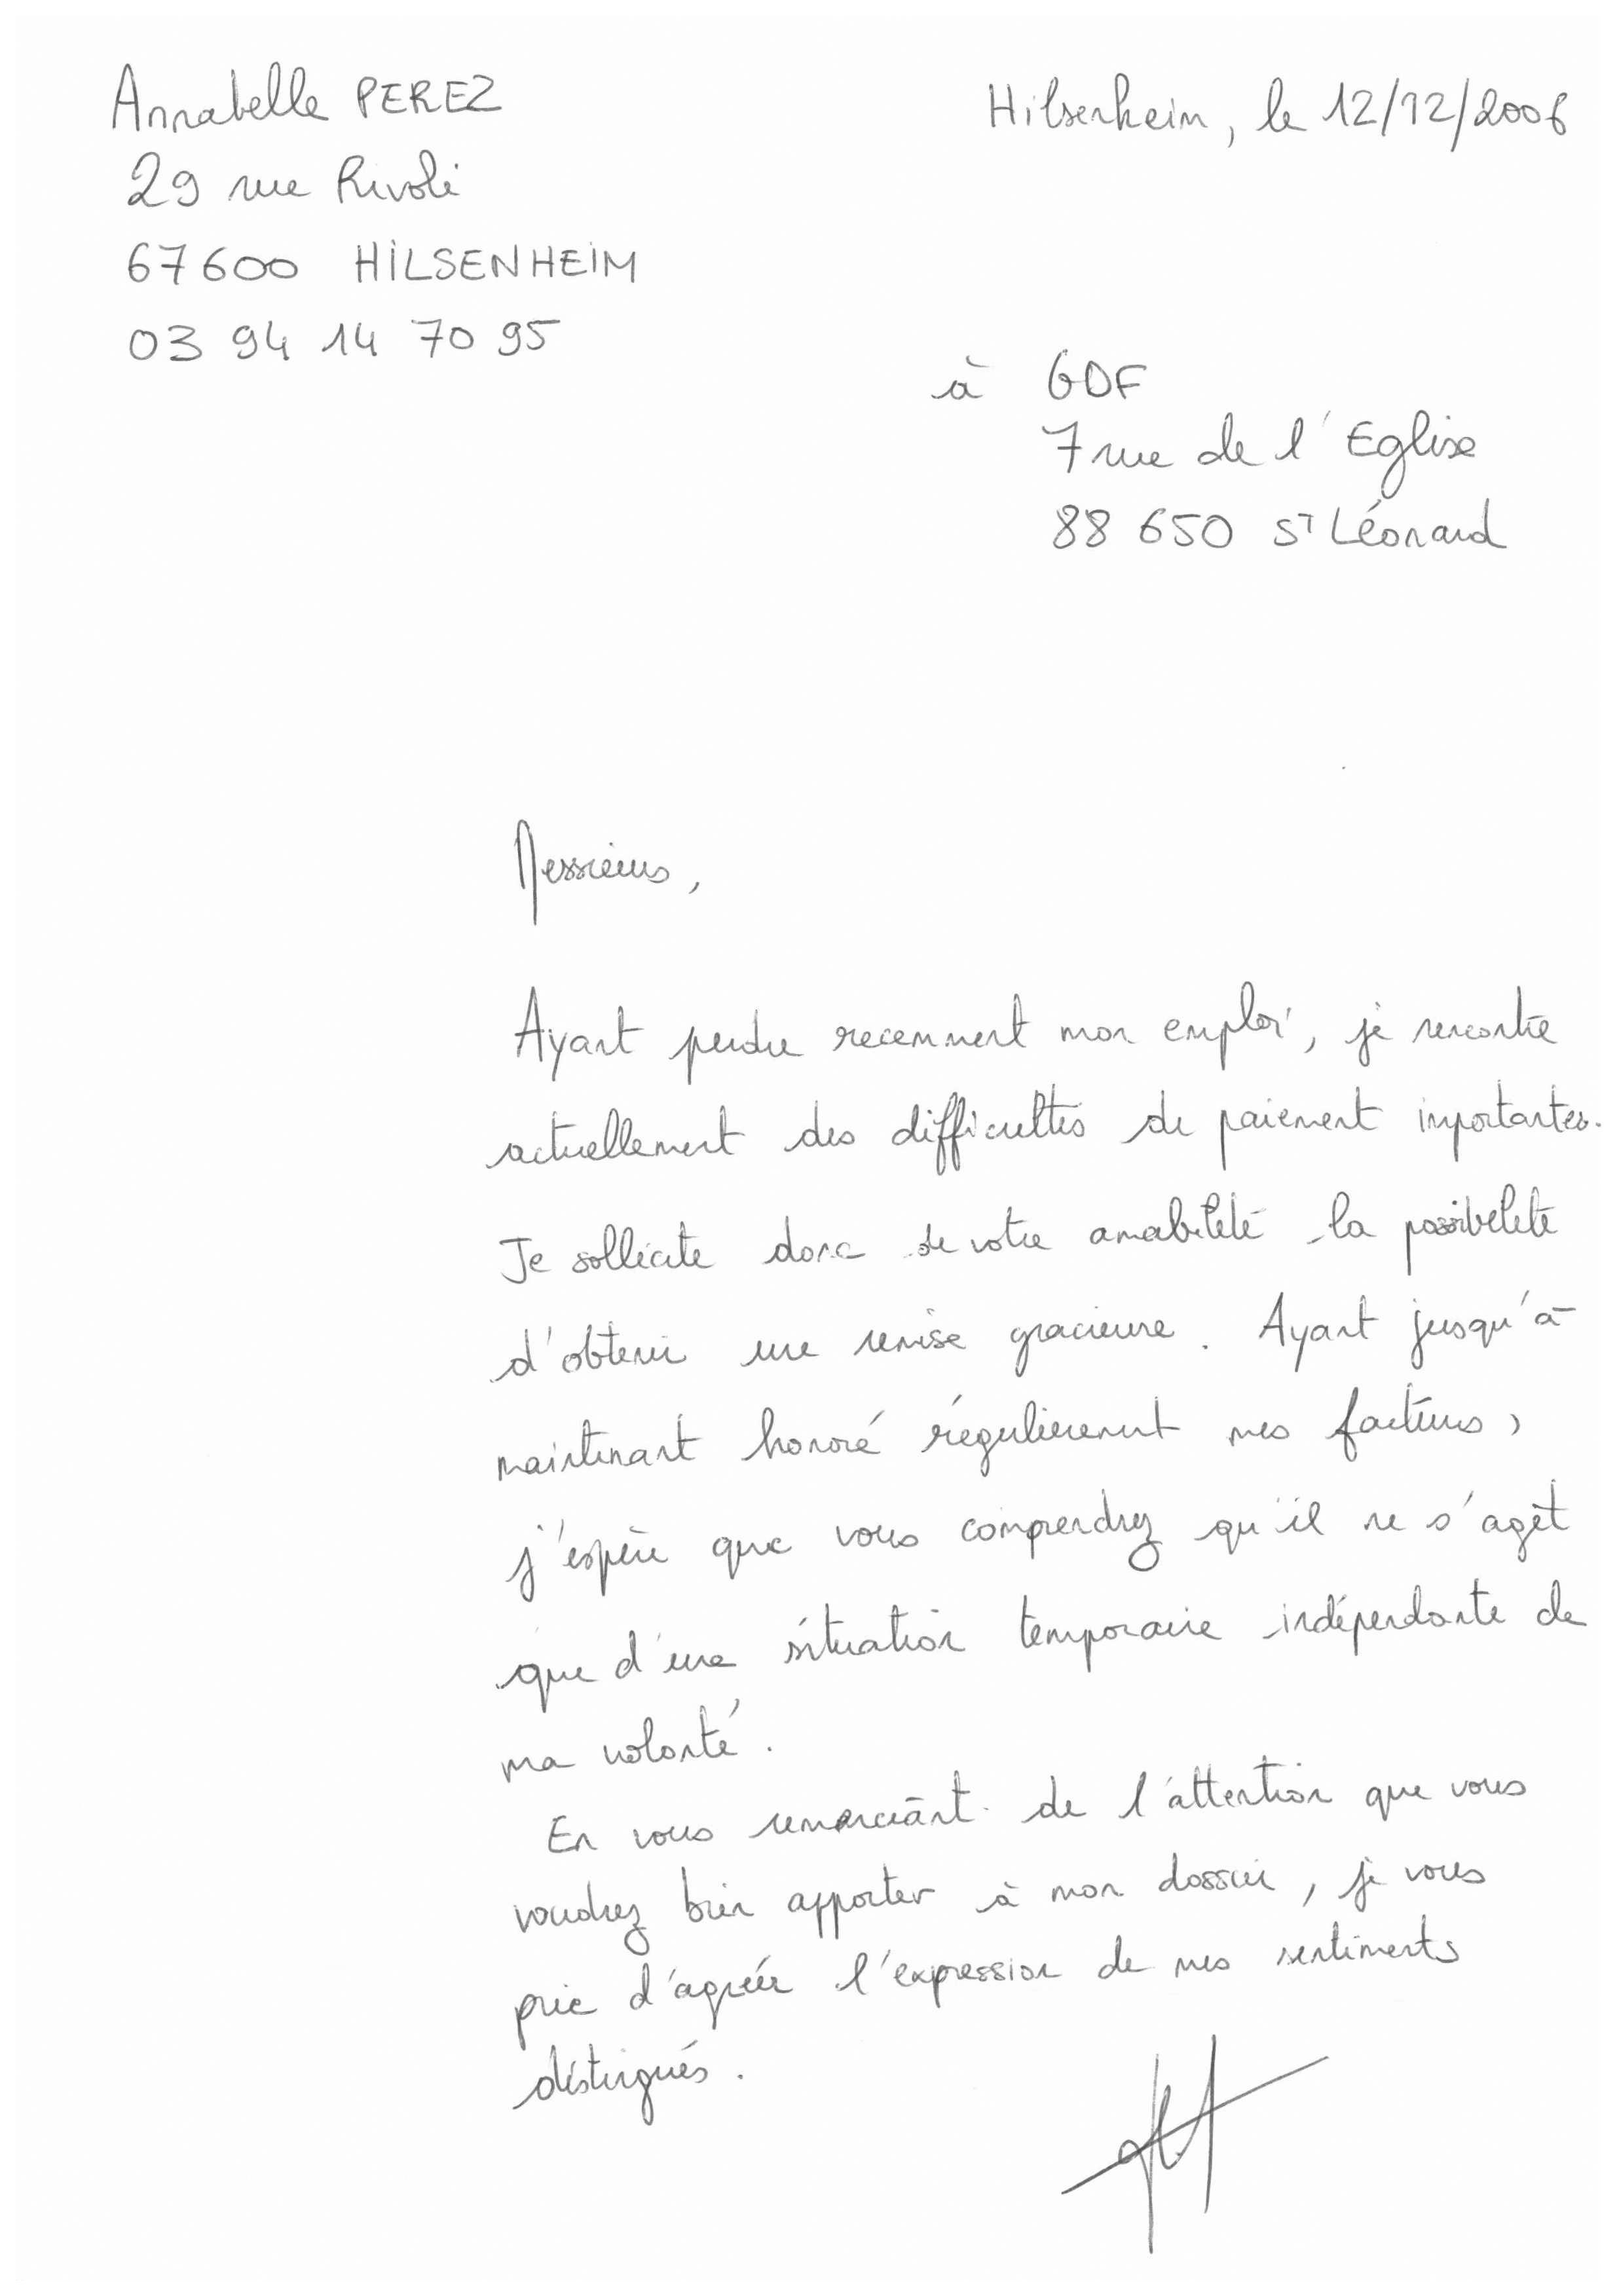 Annabelle PEREZ
29 rue Rivoli
67600 HILSENHEIM
03 94 14 70 95
Hilsenheim, le 12/12/2006
à GDF
7 rue de l'Eglise
88 650 ST Léonard
Messieurs,
Ayant perdu recemment mon emploi, je rencontre
actuellement des difficultés de paiement importantes.
Je sollicite donc de votre amabilité la possibilité
d'obtenir une remise gracieuse. Ayant jusqu'à
maintenant honoré régulièrement mes factures,
j'espère que vous comprendrez qu'il ne s'agit
que d'une situation temporaire indépendante de
ma volonté.
En vous remerciant de l'attention que vous
voudrez bien apporter à mon dossier, je vous
prie d'agréer l'expression de mes sentiments
distingués.